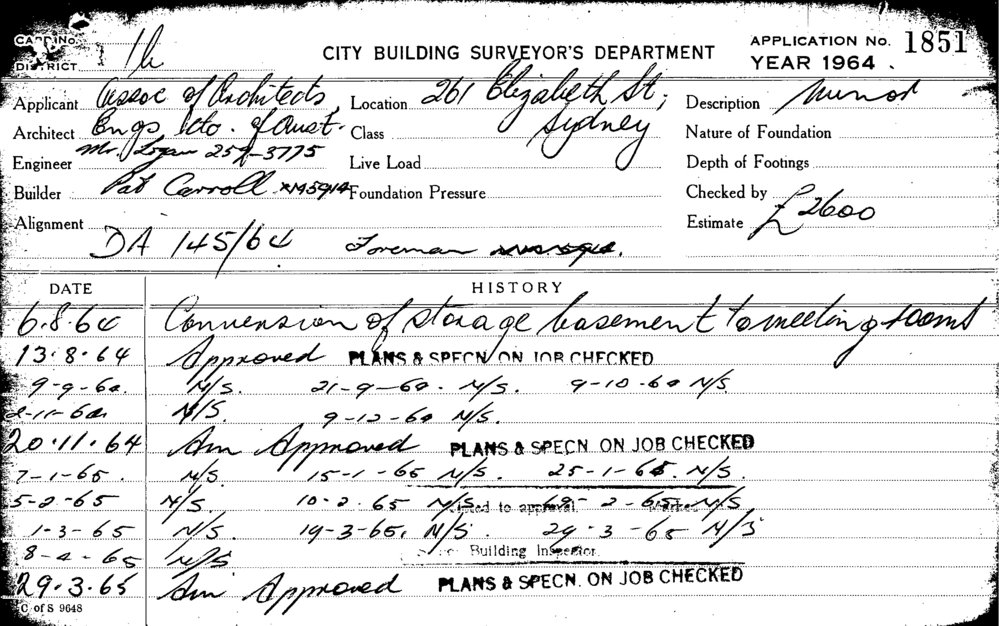 CARD No.
DISTRICT 1b
CITY BUILDING SURVEYOR'S DEPARTMENT
APPLICATION No. 1851
YEAR 1964
Applicant Assoc of Architects
Location 261 Elizabeth St;
Description Minor
Architect Engs, etc. of Aust.
Class Sydney
Nature of Foundation
Engineer Mr. Logan 259-3775
Live Load
Depth of Footings
Builder Pat Carroll
Foundation Pressure
Checked by
Alignment
Estimate £2600
DA 145/64 Foreman
DATE HISTORY
6.8.64 Conversion of storage basement to meeting rooms
13.8.64 Approved PLANS & SPECN ON JOB CHECKED
9-9-64. N/S. 21-9-64. N/S. 9-10-64 N/S.
2-11-64. N/S. 9-12-64 N/S.
20.11.64 Am Approved PLANS & SPECN. ON JOB CHECKED
7-1-65. N/S. 15-1-65 N/S. 25-1-65. N/S.
5-2-65 N/S. 10-2.65 N/S. 2-65 N/S.
to approval
1-3-65 N/S. 19-3-65. N/S. 29-3-65 N/S
8-4-65 N/S Building Inspector.
29.3.65 Am Approved PLANS & SPECN. ON JOB CHECKED
C of S 9648